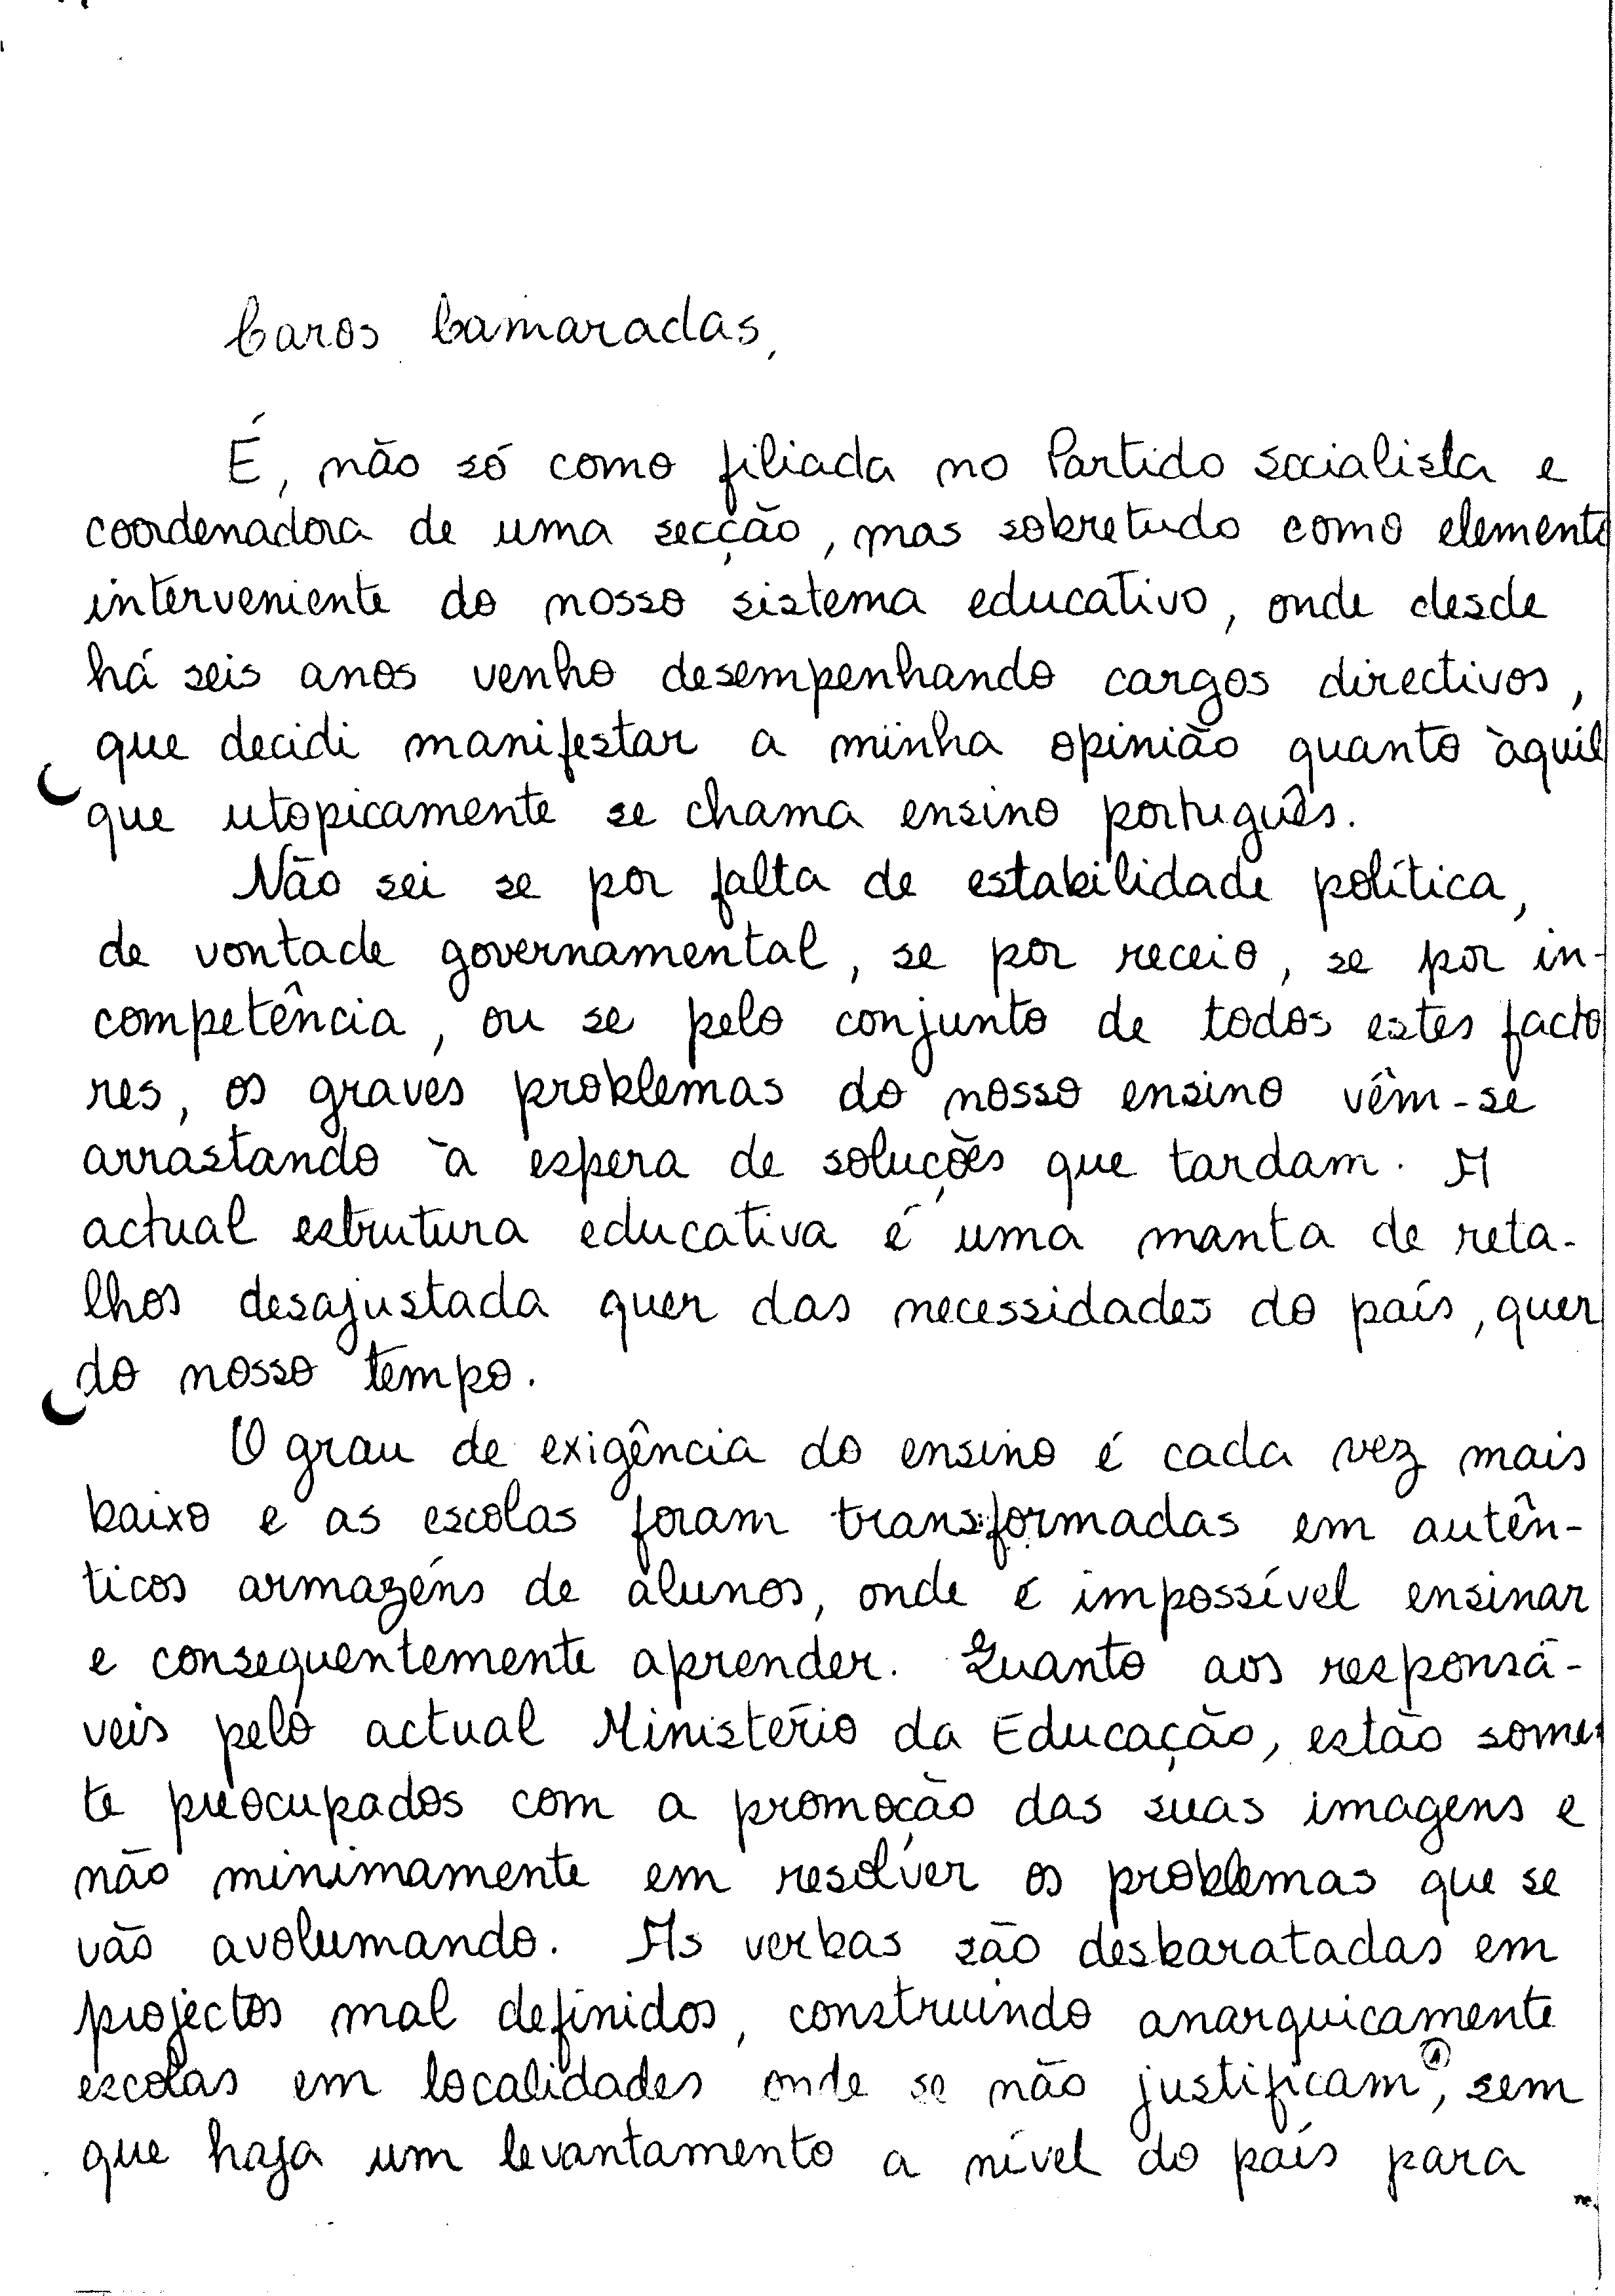 Caros Camaradas,
É, não só como filiada no Partido Socialista e
coordenadora de uma secção, mas sobretudo como elemento
interveniente do nosso sistema educativo, onde desde
há seis anos venho desempenhando cargos directivos,
que decidi manifestar a minha opinião quanto àquil
que utopicamente se chama ensino português.
Não sei se por falta de estabilidade política,
de vontade governamental, se por receio, se por in-
competência, ou se pelo conjunto de todos estes facto
res, os graves problemas do nosso ensino vêm-se
arrastando à espera de soluções que tardam. A
actual estrutura educativa é uma manta de reta-
lhos desajustada quer das necessidades do país, quer
do nosso tempo.
O grau de exigência do ensino é cada vez mais
baixo e as escolas foram transformadas em autên-
ticos armazéns de alunos, onde é impossível ensinar
e consequentemente aprender. Quanto aos responsá-
veis pelo actual Ministério da Educação, estão somen
te preocupados com a promoção das suas imagens e
não minimamente em resolver os problemas que se
vão avolumando. As verbas são desbaratadas em
projectos mal definidos, construindo anarquicamente
escolas em localidades onde se não justificam ①, sem
que haja um levantamento a nível do país para